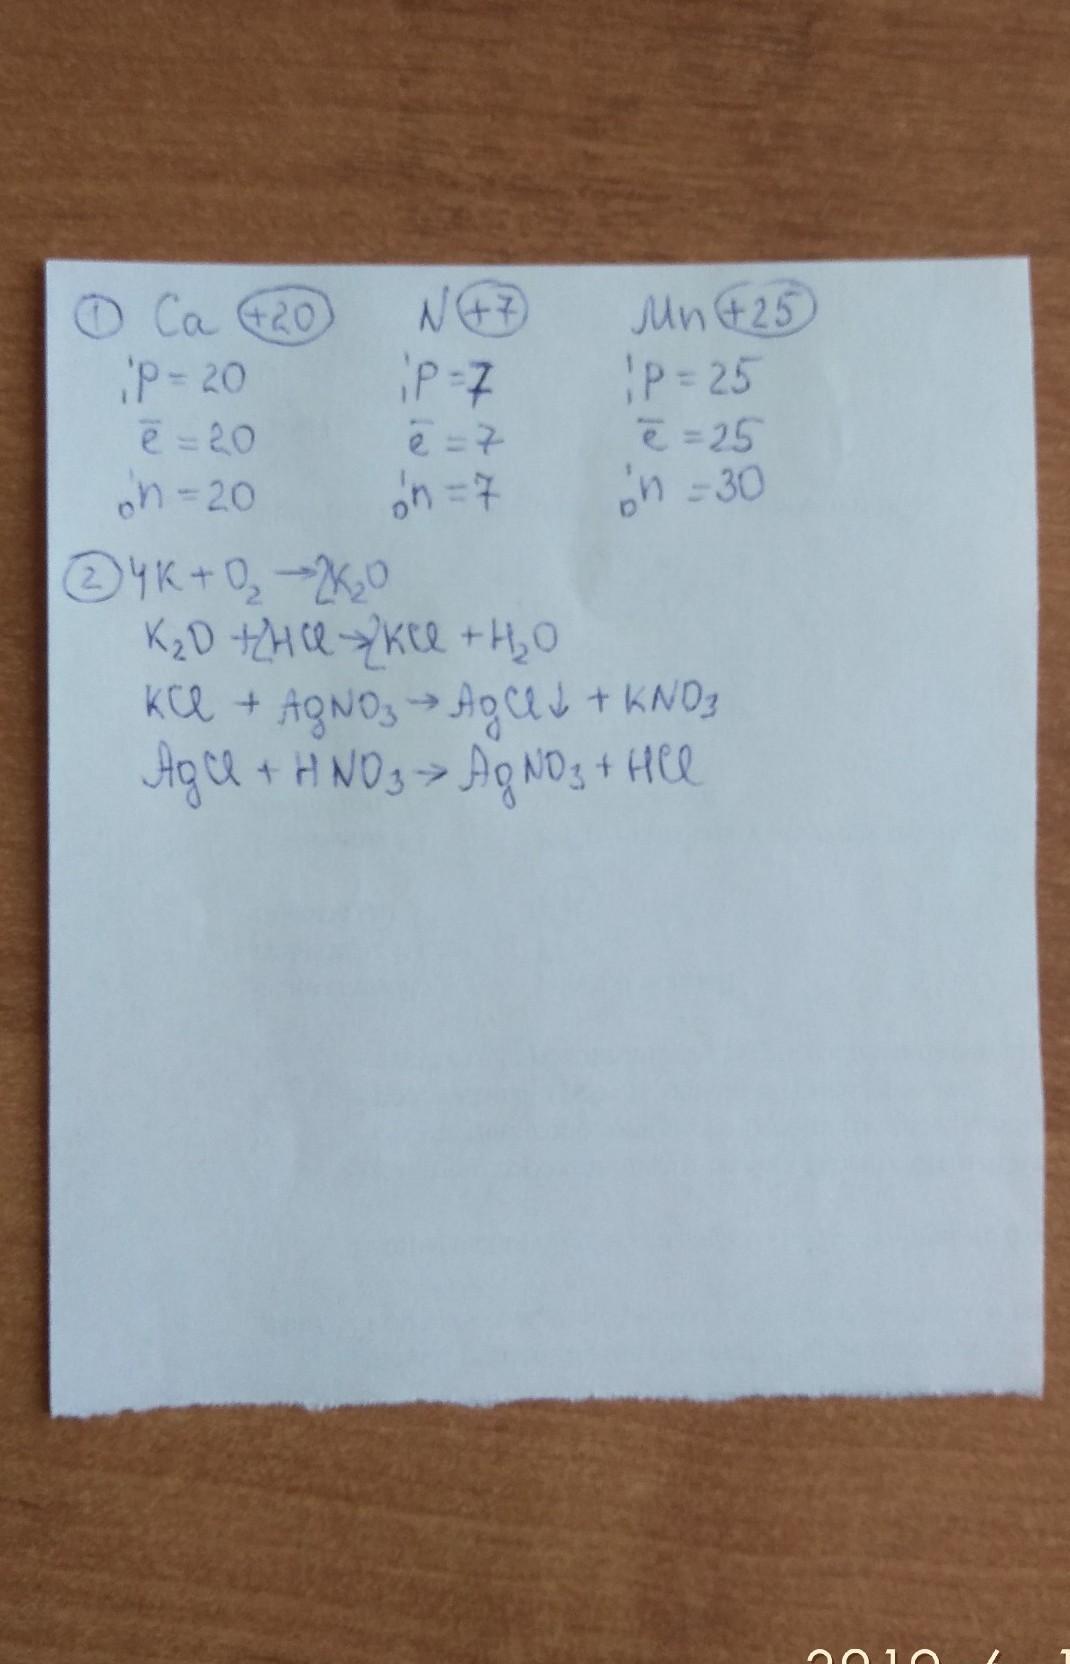 ① Ca +20 N +7 Mn +25
¹₁p = 20 ¹₁p = 7 ¹₁p = 25
ē = 20 ē = 7 ē = 25
¹₀n = 20 ¹₀n = 7 ¹₀n = 30
② 4K + O₂ → 2K₂O
K₂O + 2HCl → 2KCl + H₂O
KCl + AgNO₃ → AgCl↓ + KNO₃
AgCl + HNO₃ → AgNO₃ + HCl